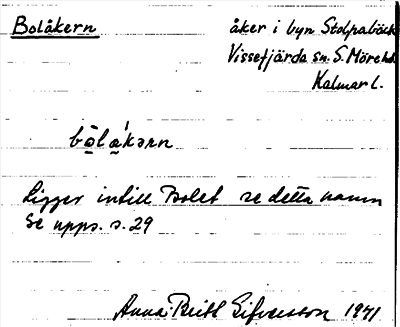 Bolåkern
åker i byn Stolpabäck
Vissefjärda sn. S. Möre hd.
Kalmar l.
bo̲la̲'kərn
Ligger intill Bolet se detta namn
Se upps. s. 29
Anna-Britt Sifvesson 1941